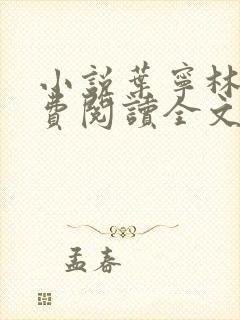 小說葉寧林
費閱讀全文
孟春